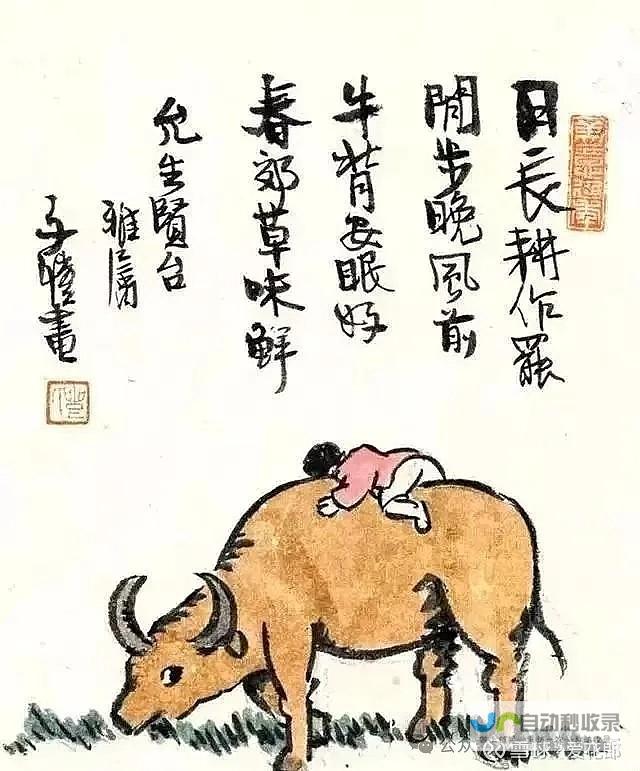 日长耕作罢
閒步晚风前
牛背安眠好
春郊草味鲜
允生賢台
雅属
子愷畫
自动秒收录
公众
雪球：爱花郎